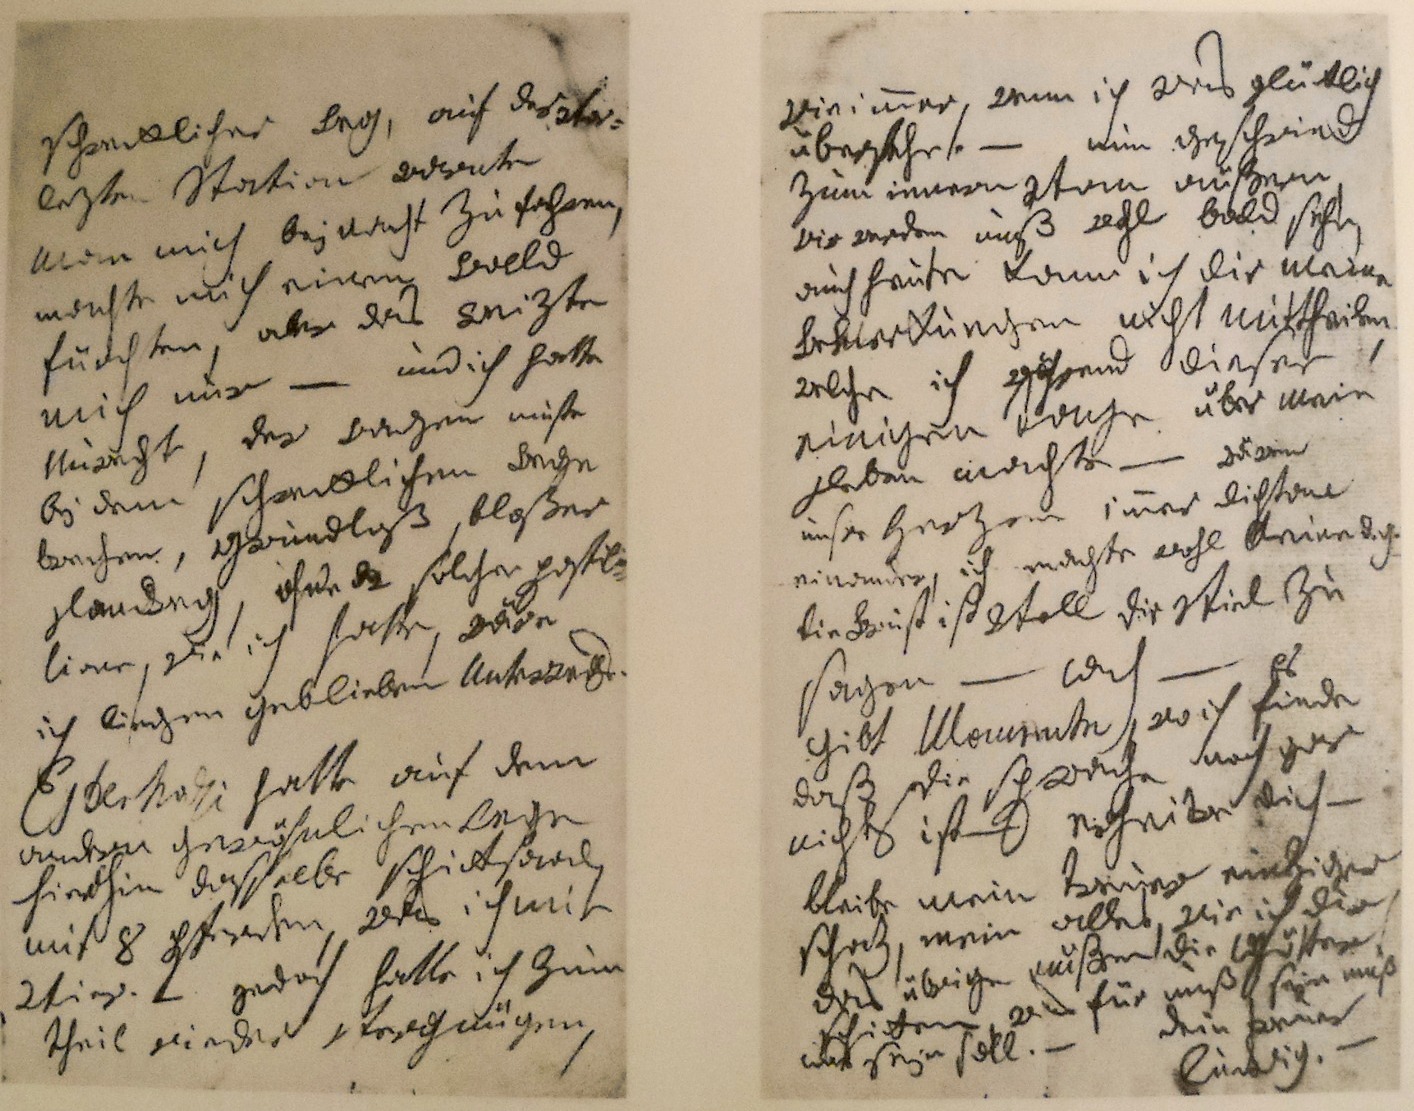 schrecklicher Weg, auf der vor=
letzten Station warnte
man mich bej nacht zu fahren,
machte mich einen Wald
fürchten, aber das reizte
mich nur — und ich hatte
Unrecht, der Wagen muste
bej dem schrecklichen Wege
brechen, grundloß, bloßer
Landweg, ohne solche Postil=
lione, wie ich hatte, wäre
ich liegen geblieben Unterwegs.
Esterhazi hatte auf dem
andern gewöhnlichen Wege
hierhin dasselbe schicksaal,
mit 8 Pferden, was ich mit
vier. — jedoch hatte ich zum
theil wieder Vergnügen,
wie im̄er, wenn ich was glücklich
überstehe. — nun geschwind
zum innern vom aüßern,
wir werden unß wohl bald sehn,
auch heute kann ich dir meine
Bemerkungen nicht mittheilen,
welche ich während dieser
einigen Tage über mein
Leben machte — wären
unsre Herzen im̄er dicht an
einander, ich machte wohl keine d.g.
die Brust ist voll dir viel zu
sagen — ach — es
gibt Momente, wo ich finde
daß die sprache noch gar
nichts ist — erheitre dich —
bleibe mein treuer einziger
schatz, mein alles, wie ich dir
das übrige müßen die Götter
schicken, was für unß sein muß
und sein soll. — dein treuer
ludwig. —